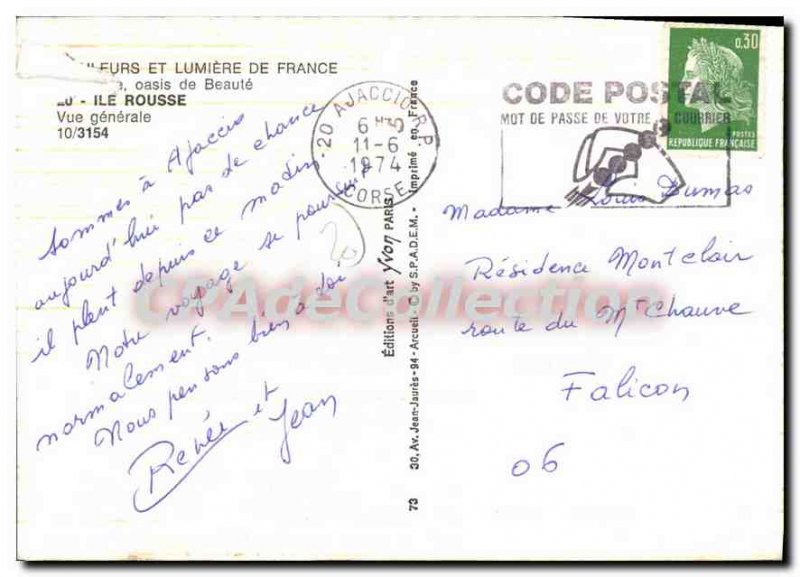 ULEURS ET LUMIÈRE DE FRANCE
oasis de Beauté
20 - ILE ROUSSE
Vue générale
10/3154
Sommes à Ajaccio
aujourd'hui pas de chance
il pleut depuis ce matin.
Notre voyage se poursuit
normalement.
Nous pensons bien à toi
Renée et
Jean
20
20 AJACCIO R.P.
11-6
1974
CORSE
CODE POSTAL
MOT DE PASSE DE VOTRE COURRIER
0,30
POSTES
REPUBLIQUE FRANÇAISE
Éditions d'art Yvon PARIS
73 30, Av. Jean-Jaurès - 94 - Arcueil - © by S.P.A.D.E.M. - Imprimé en France
Madame Louis Dumas
Résidence Montclair
route du Mt Chauve
Falicon
06
CPAdeCollection